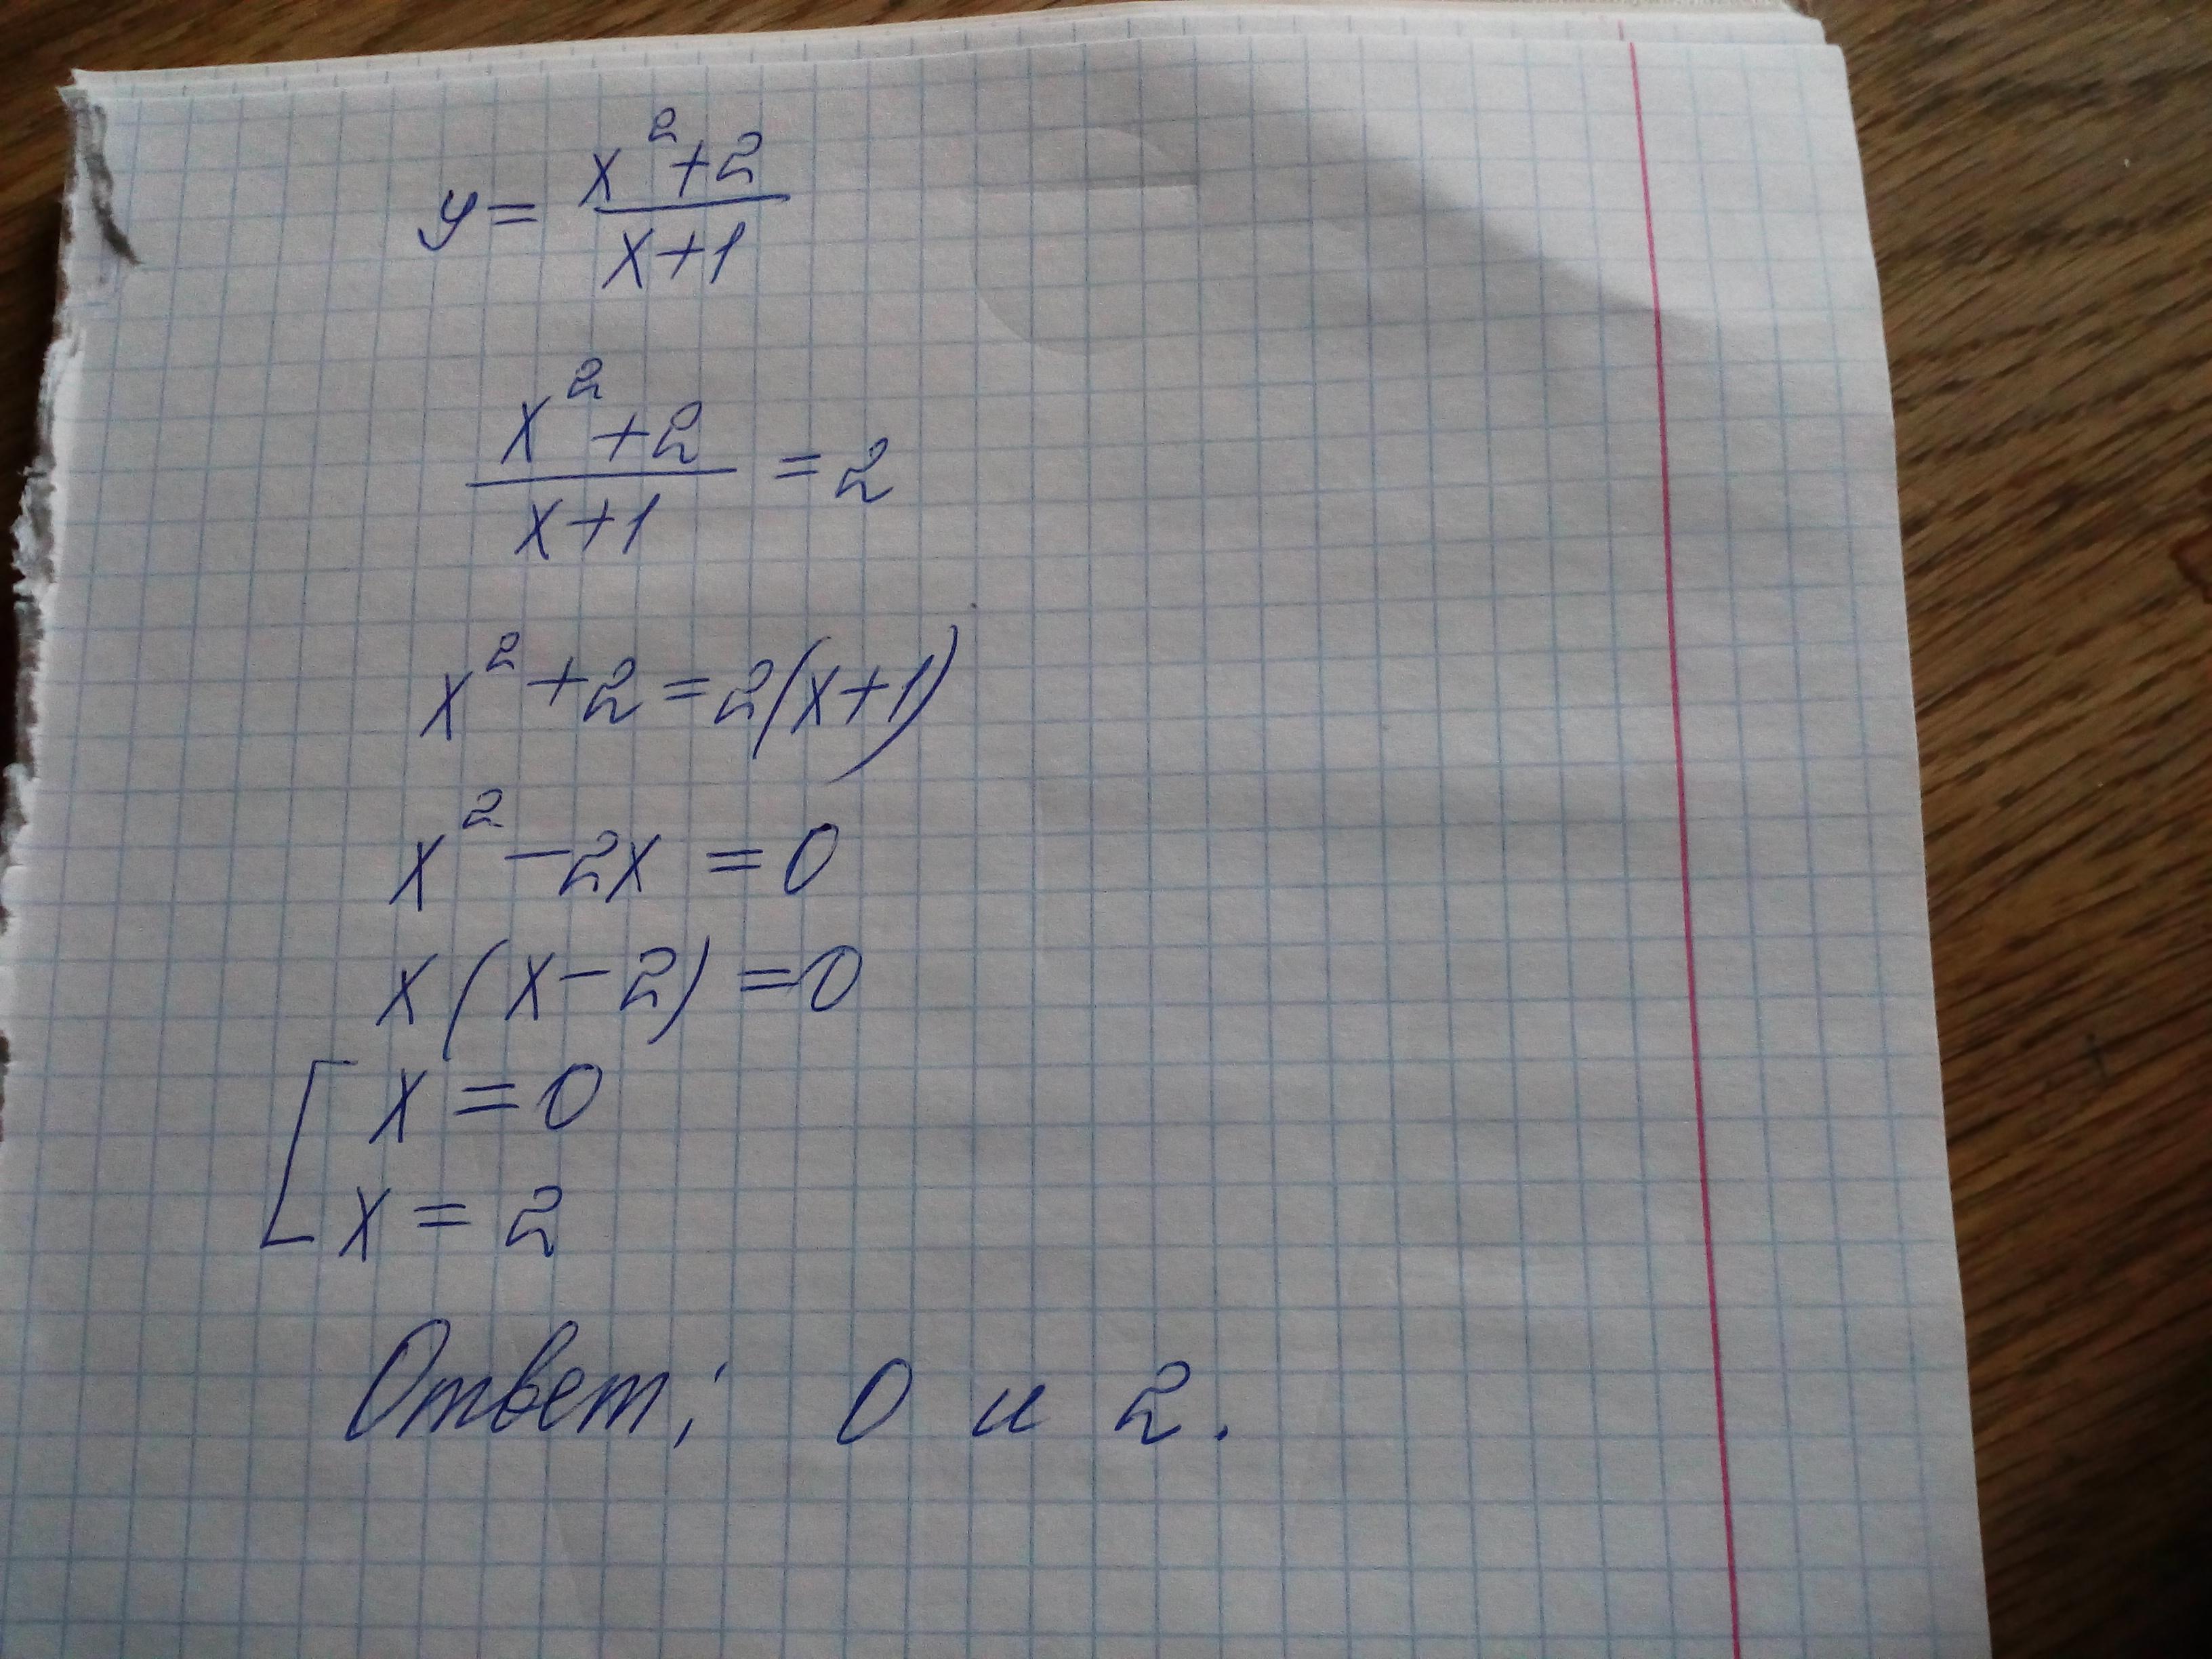 y = (x² + 2) / (x + 1)
(x² + 2) / (x + 1) = 2
x² + 2 = 2(x + 1)
x² - 2x = 0
x(x - 2) = 0
[ x = 0
x = 2
Ответ: 0 и 2.